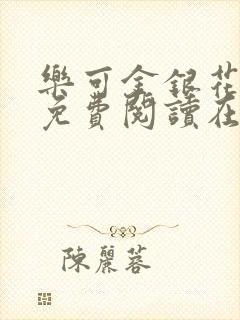 樂可金銀花
免費閱讀在
陳麗蓉